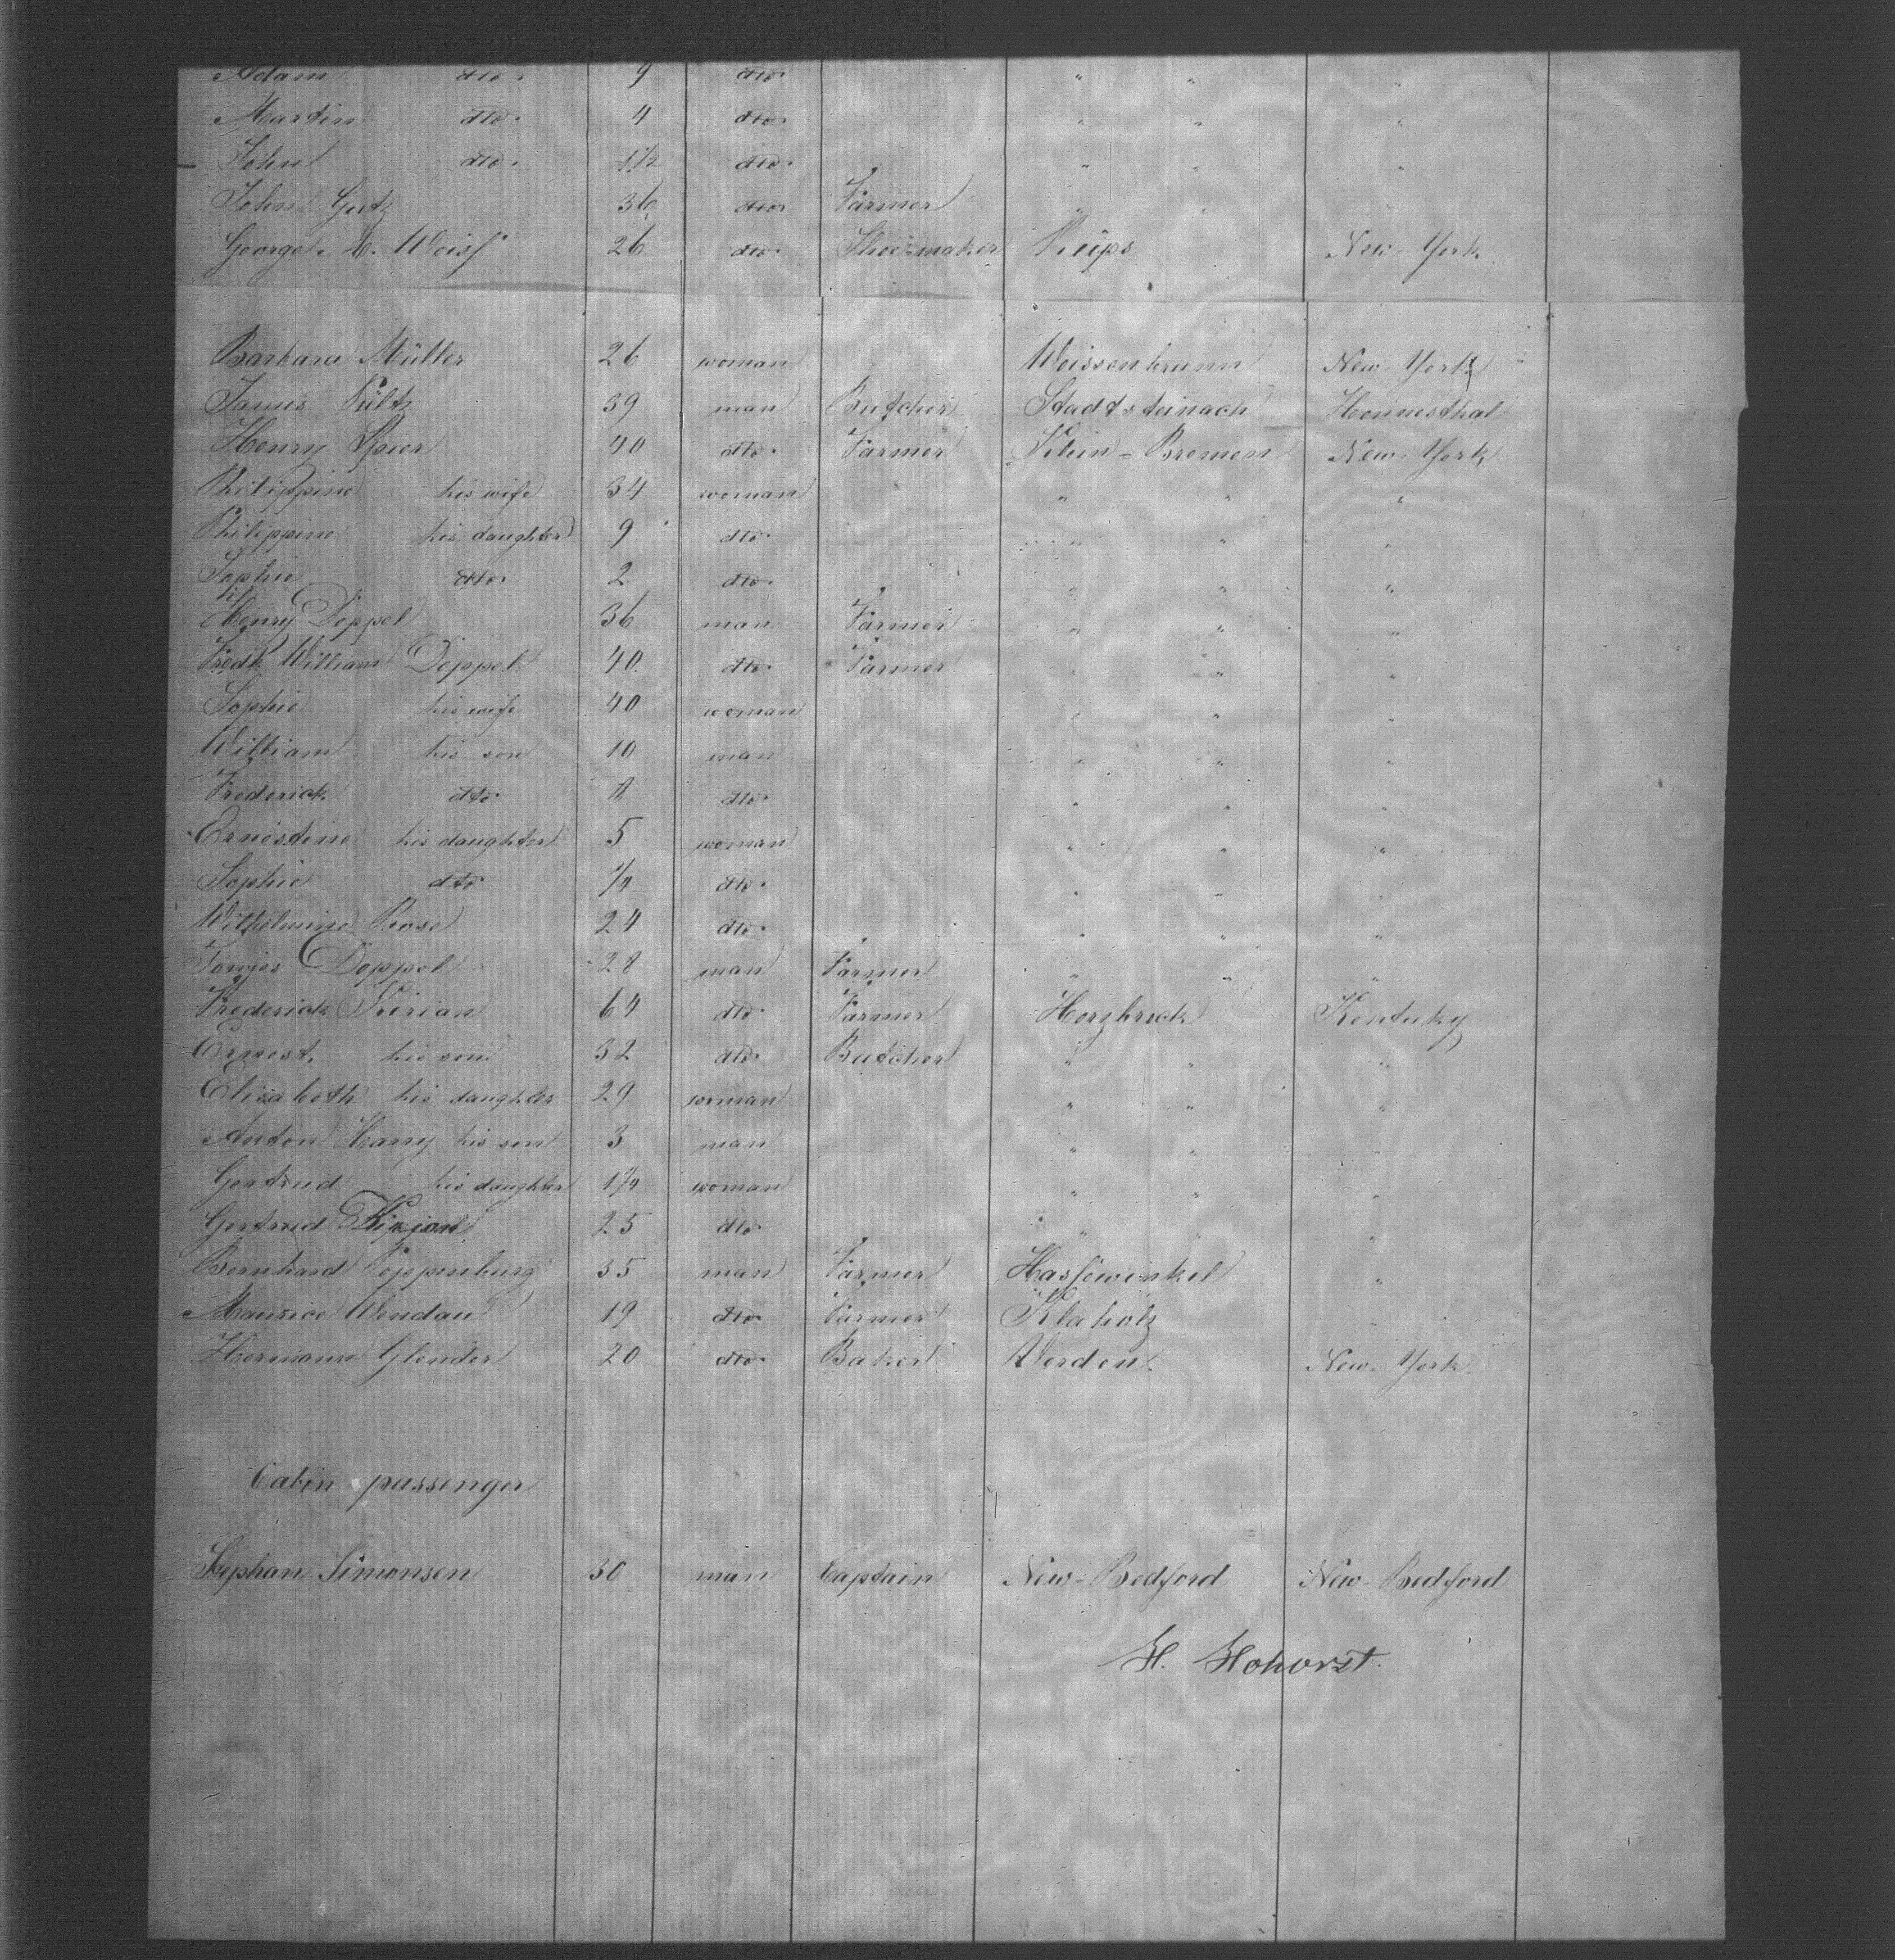 Adam dto. 9 dto. " " "
Martin dto. 4 dto. " " "
John dto. 1 1/2 dto. " " "
John Gutz 36 dto. Farmer " " "
George M. Weiss 26 dto. Shoemaker Küps New-York
Barbara Müller 26 woman Weissenbrunn New-York
James Pültz 39 man Butcher Stadtsteinach Honnesthal
Henry Spier 40 dto. Farmer Klein-Bremen New-York
Philippine his wife 34 woman " " "
Philippine his daughter 9 dto. " " "
Sophie dto. 2 dto. " " "
Henry Deppel 36 man Farmer " " "
Fredk William Deppel 40 dto. Farmer " " "
Sophie his wife 40 woman " " "
William his son 10 man " " "
Frederick dto. 8 dto. " " "
Ernestine his daughter 5 woman " " "
Sophie dto 1/4 dto. " " "
Wilhelmine Rose 24 dto. " " "
Tonjes Doppel 28 man Farmer " " "
Frederick Kirian 64 dto. Farmer Herzbrick Kentuky
Ernest, his son 32 dto. Butcher " " "
Elisabeth his daughter 29 woman " " "
Anton Harry his son 3 man " " "
Gertrud his daughter 1/4 woman " " "
Gertrud Kirian 25 dto. " " "
Bernhard Poppenburg 35 man Farmer Hassewinkel "
Maurice Wendau 19 dto. Farmer Klaholz "
Hermann Glender 20 dto. Baker Verden. New-York.
Cabin passenger
Stephan Simonsen 30 man Captain New-Bedford New-Bedford
H. Hohorst.